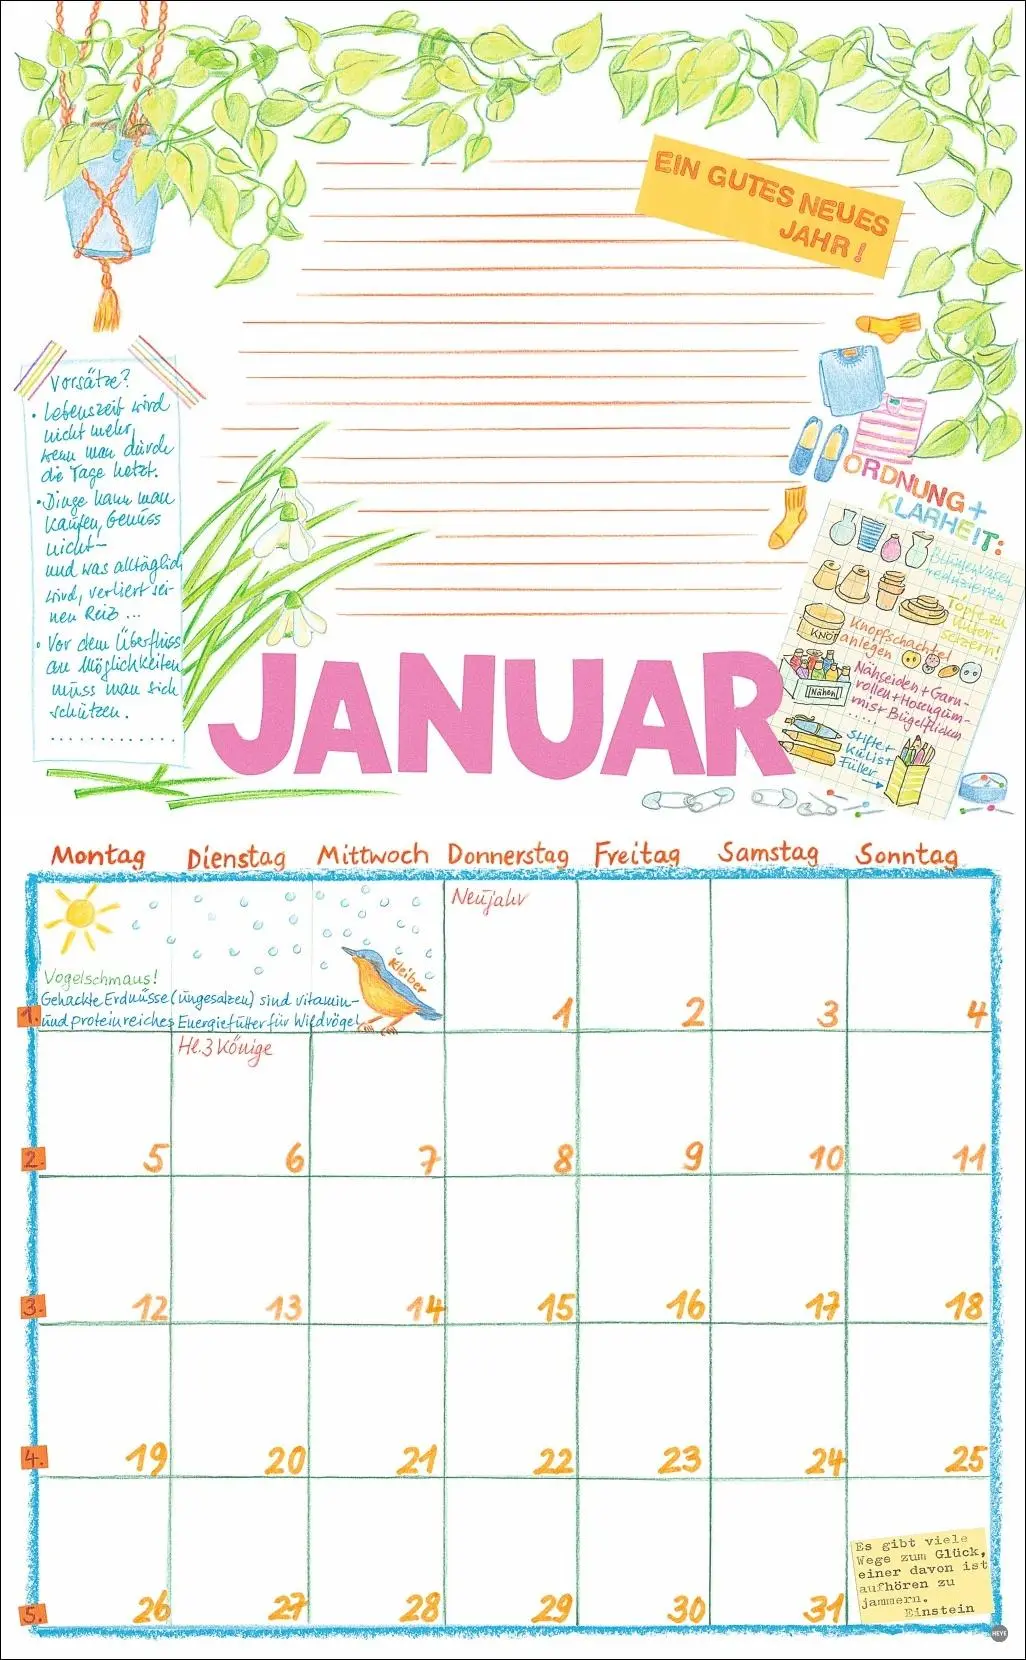 EIN GUTES NEUES
JAHR!
Vorsätze?
• Lebenszeit wird
nicht mehr,
wenn man durch
die Tage hetzt.
• Dinge kann man
kaufen, Genuss
nicht –
und was alltäglich
wird, verliert sei-
nen Reiz ...
• Vor dem Überfluss
an Möglichkeiten
muss man sich
schützen.
.............
ORDNUNG +
KLARHEIT:
Blumenvasen
reduzieren
Töpfe zu
Unter-
setzern!
KNÖPF
Knopfschachtel
anlegen
Nähen
Nähseiden + Garn-
rollen + Hosengum-
mi + Bügelflicken
.....
Stifte +
Kulis +
Füller
JANUAR
Montag Dienstag Mittwoch Donnerstag Freitag Samstag Sonntag
Neujahr
Kleiber
Vogelschmaus!
Gehackte Erdnüsse (ungesalzen) sind vitamin-
und proteinreiches Energiefutter für Wildvögel
1. 1 2 3 4
Hl. 3 Könige
2. 5 6 7 8 9 10 11
3. 12 13 14 15 16 17 18
4. 19 20 21 22 23 24 25
5. 26 27 28 29 30 31
Es gibt viele
Wege zum Glück,
einer davon ist
aufhören zu
jammern.
Einstein
HEYE